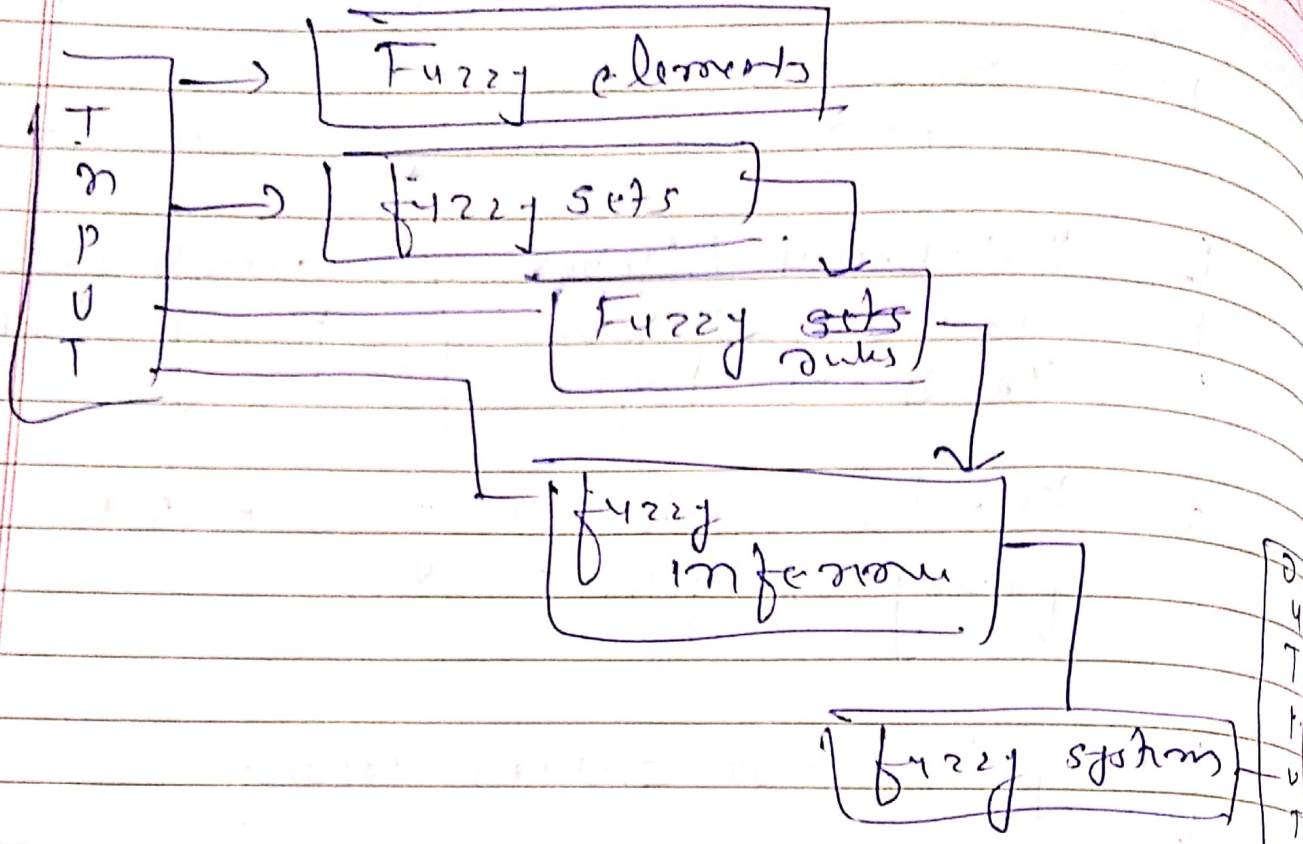 INPUT
Fuzzy elements
fuzzy sets
Fuzzy sets
rules
fuzzy
inference
fuzzy systems
OUTPUT